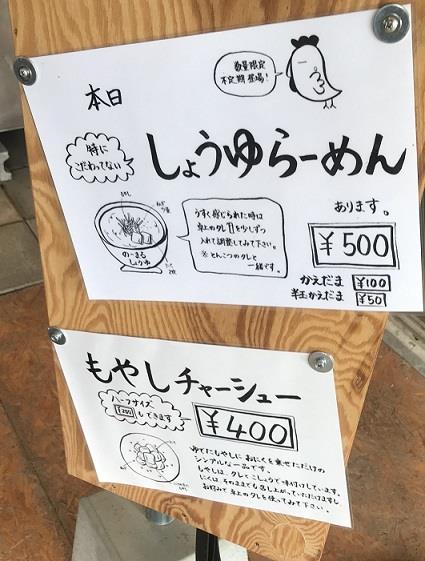 数量限定
不定期登場!
本日
特に
こだわってない
しょうゆらーめん
あります。
¥500
うすく感じられた時は
卓上のタレを少しずつ
入れて調整してみて下さい。
※とんこつのタレと
一緒です。
のーまる
しょうゆ
かえだま ¥100
半玉かえだま ¥50
もやしチャーシュー
ハーフサイズ
¥200 もできます
¥400
ゆでたもやしに おにくを乗せただけの
シンプルな一品です。
もやしは、タレとこしょうで味付けしています。
にくは、そのままでも召し上がっていただけますし
お好みで卓上のタレを使ってみて下さい。